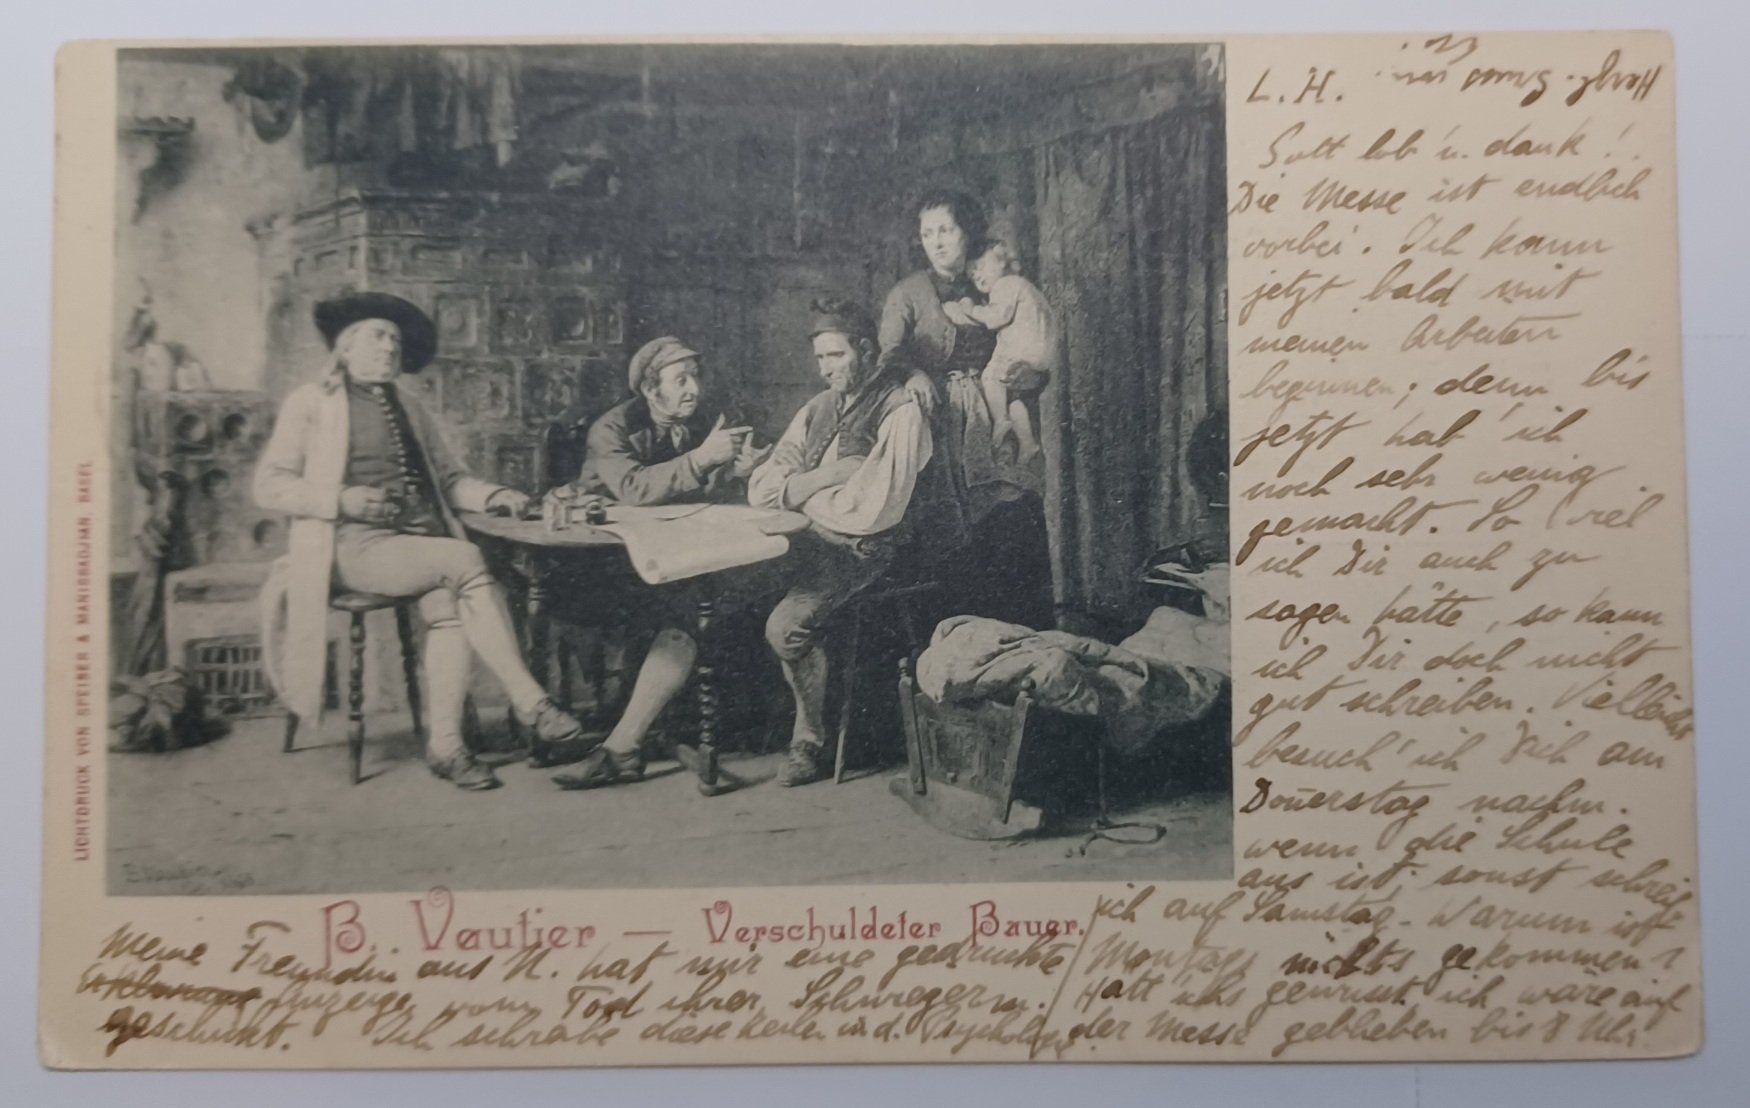 L. H.
Gott lob u. dank!
Die Messe ist endlich
vorbei. Ich kann
jetzt bald mit
meinen Arbeiten
beginnen; denn bis
jetzt hab' ich
noch sehr wenig
gemacht. So viel
ich Dir auch zu
sagen hätte, so kann
ich Dir doch nicht
gut schreiben. Vielleicht
besuch' ich Dich am
Don̄erstag nachm.
wenn die Schule
aus ist; sonst schreib
ich auf Samstag. Warum ist
Montags nichts gekommen?
Hätt' ichs gewusst ich wäre auf
der Messe geblieben bis 8 Uhr.
B. Vautier — Verschuldeter Bauer.
Meine Freundin aus N. hat mir eine gedruckte
Anzeige vom Tod ihrer Schwiegerm.
geschickt. Ich schrabe diese Zeilen in d. Psychologie
LICHTDRUCK VON SPEISER & MANISSADJIAN, BASEL
B. Vautier